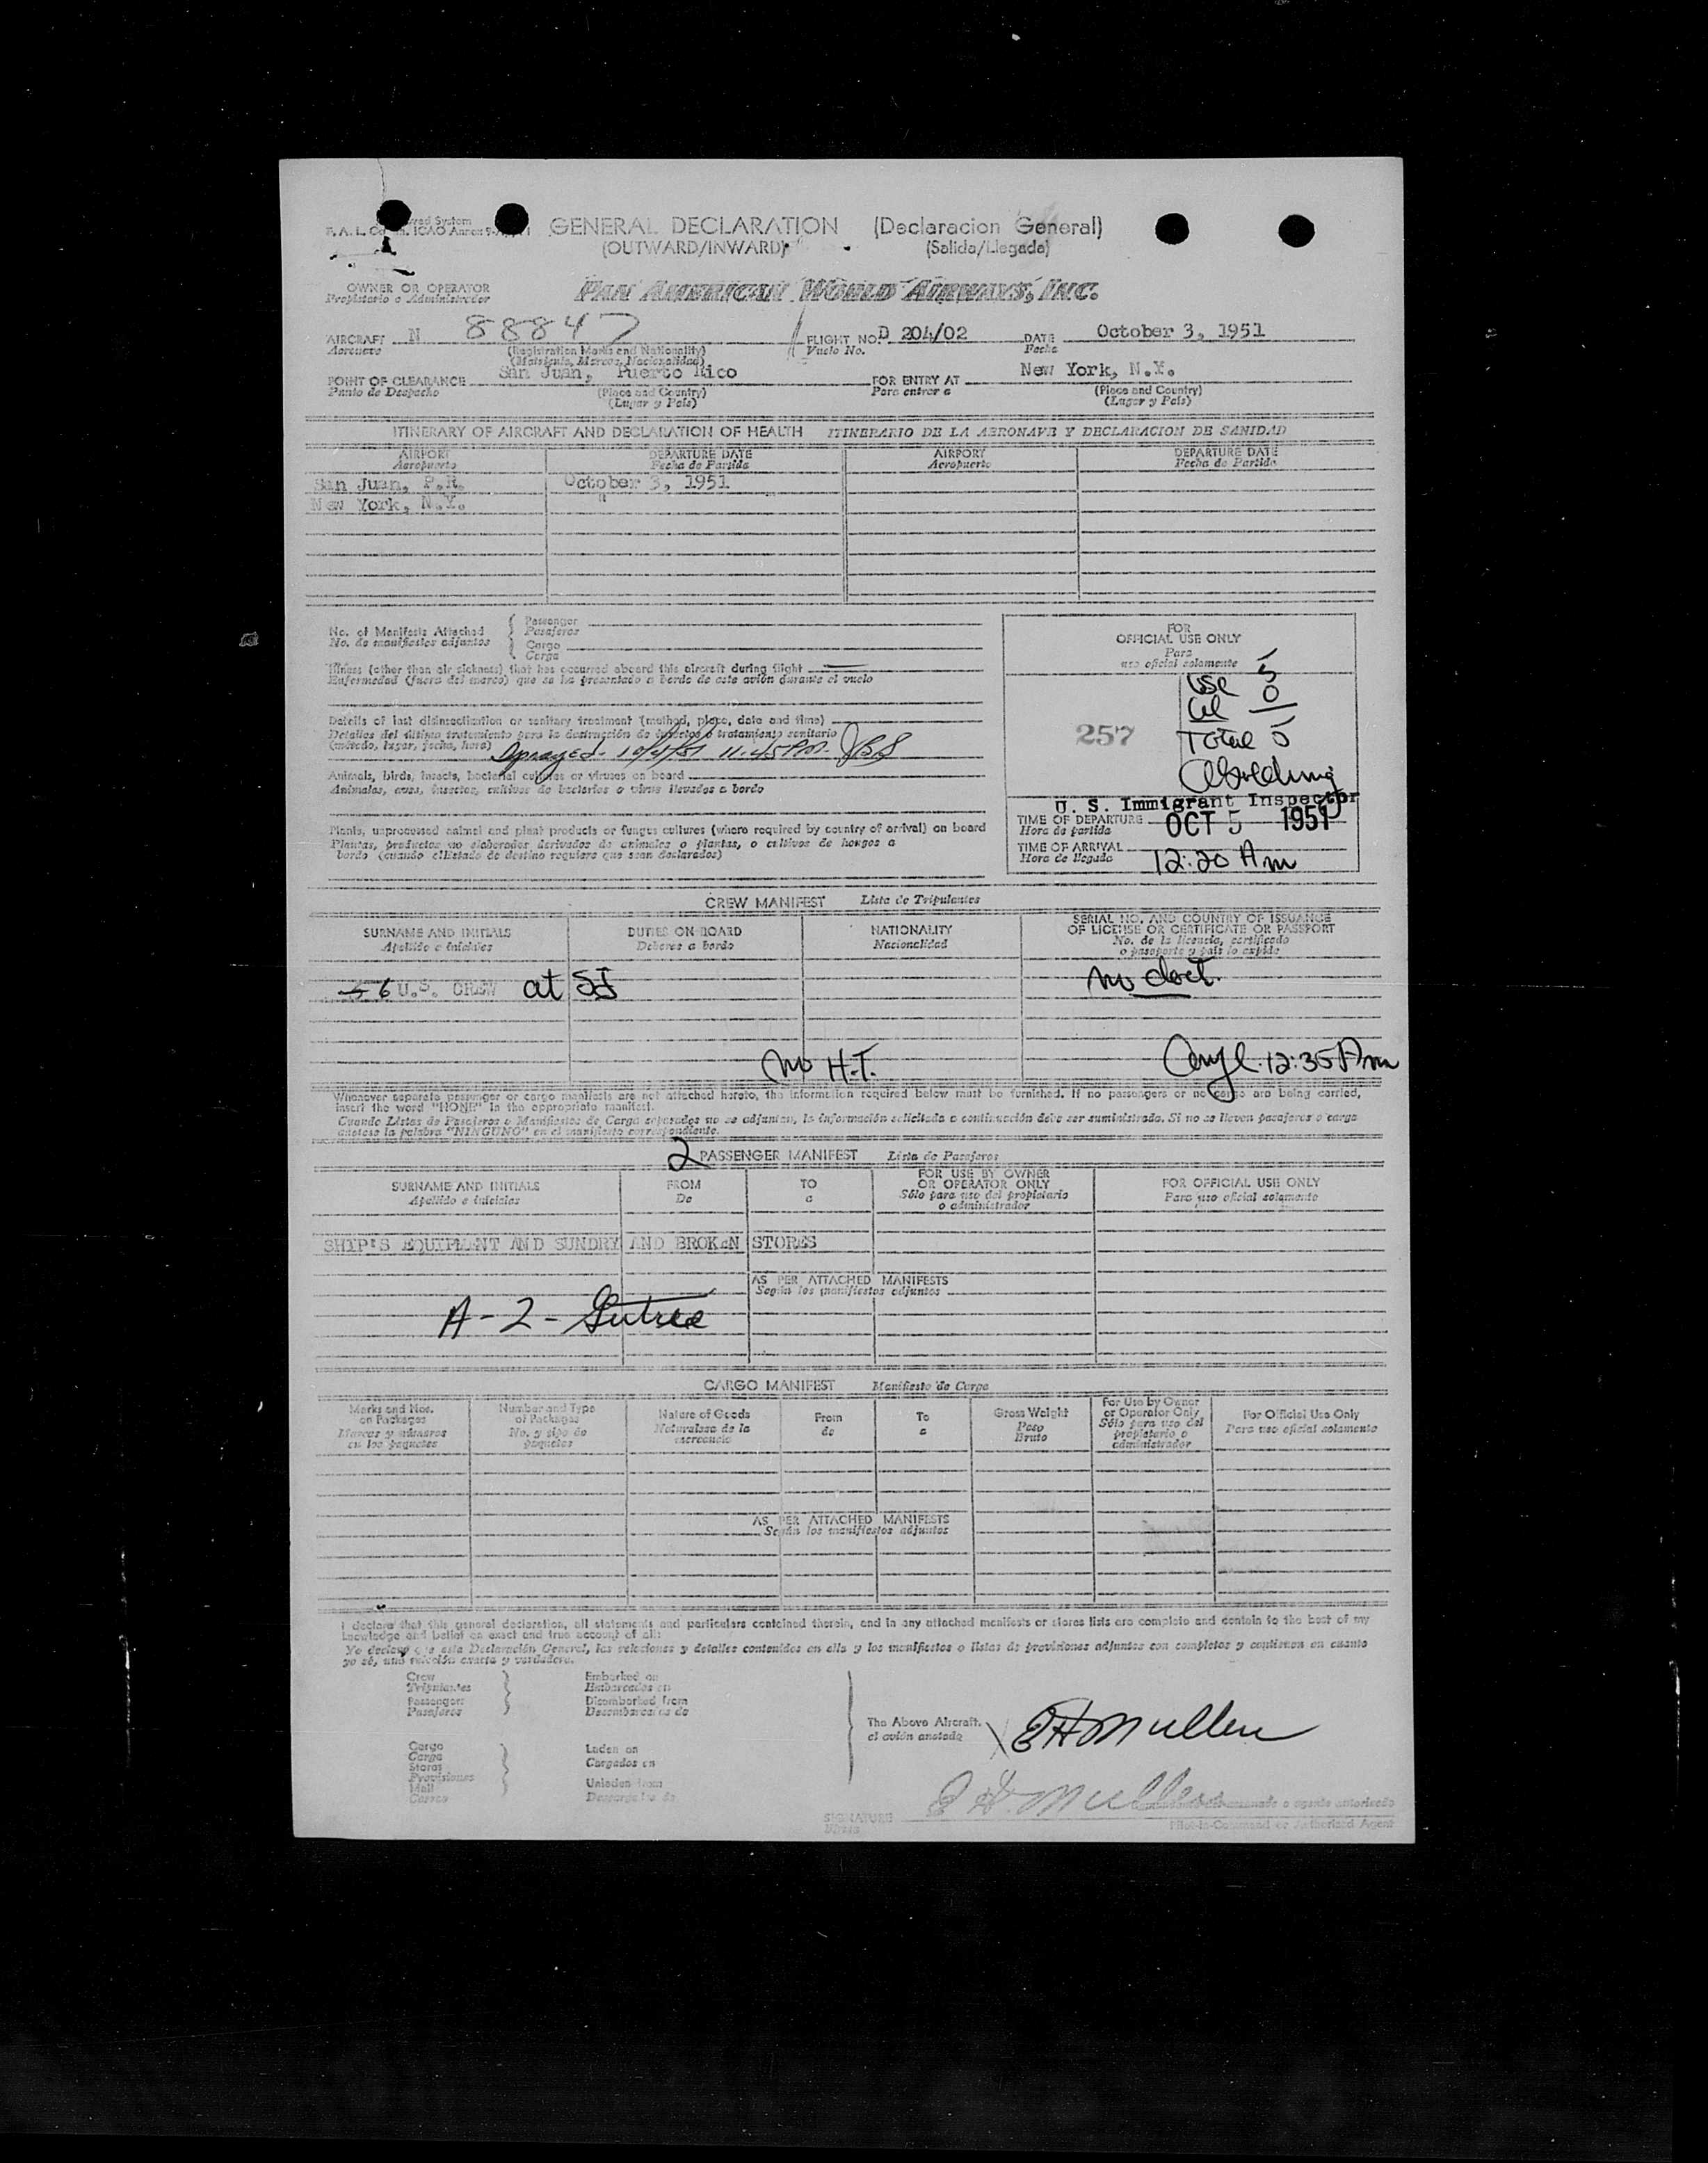 GENERAL DECLARATION (Declaracion General)
(OUTWARD/INWARD) (Salida/Llegada)
OWNER OR OPERATOR
Propietario o Administrador
PAN AMERICAN WORLD AIRWAYS, INC.
AIRCRAFT N 88847 FLIGHT NO. D 204/02 DATE October 3, 1951
Aeronave (Registration Marks and Nationality) Vuelo No. Fecha
(Matricula, Marcas, Nacionalidad)
POINT OF CLEARANCE San Juan, Puerto Rico FOR ENTRY AT New York, N.Y.
Punto de Despacho (Place and Country) Para entrar a (Place and Country)
(Lugar y País) (Lugar y País)
ITINERARY OF AIRCRAFT AND DECLARATION OF HEALTH ITINERARIO DE LA AERONAVE Y DECLARACION DE SANIDAD
AIRPORT DEPARTURE DATE AIRPORT DEPARTURE DATE
Aeropuerto Fecha de Partida Aeropuerto Fecha de Partida
San Juan, P.R. October 3, 1951
New York, N.Y. "
No. of Manifests Attached
No. de manifiestos adjuntos
Passenger
Pasajeros
Cargo
Carga
Illness (other than air sickness) that has occurred aboard this aircraft during flight
Enfermedad (fuera del mareo) que se ha presentado a bordo de este avión durante el vuelo
Details of last disinsectization or sanitary treatment (method, place, date and time)
Detalles del último tratamiento para la destrucción de insectos o tratamiento sanitario
(método, lugar, fecha, hora) Sprayed - 10/4/51 11:45 PM.
Animals, birds, insects, bacterial cultures or viruses on board
Animales, aves, insectos, cultivos de bacterias o virus llevados a bordo
Plants, unprocessed animal and plant products or fungus cultures (where required by country of arrival) on board
Plantas, productos no elaborados derivados de animales o plantas, o cultivos de hongos a
bordo (cuando el Estado de destino requiera que sean declarados)
FOR
OFFICIAL USE ONLY
Para
uso oficial solamente
USC 5
Al 0
257
Total 5
U. S. Immigrant Inspector
TIME OF DEPARTURE OCT 5 1951
Hora de partida
TIME OF ARRIVAL
Hora de llegada 12:20 Am
CREW MANIFEST Lista de Tripulantes
SURNAME AND INITIALS DUTIES ON BOARD NATIONALITY SERIAL NO. AND COUNTRY OF ISSUANCE
OF LICENSE OR CERTIFICATE OR PASSPORT
Apellido e iniciales Deberes a bordo Nacionalidad No. de la licencia, certificado
o pasaporte y país lo expide
5 6 U.S. CREW at SJ no doct.
no H.T. 12:35 Am
Whenever separate passenger or cargo manifests are not attached hereto, the information required below must be furnished. If no passengers or no cargo are being carried,
insert the word "NONE" in the appropriate manifest.
Cuando Listas de Pasajeros o Manifiestos de Carga separados no se adjuntan, la información solicitada a continuación debe ser suministrada. Si no se lleven pasajeros o carga
anótese la palabra "NINGUNO" en el manifiesto correspondiente.
2 PASSENGER MANIFEST Lista de Pasajeros
SURNAME AND INITIALS FROM TO FOR USE BY OWNER
OR OPERATOR ONLY FOR OFFICIAL USE ONLY
Apellido e iniciales De a Sólo para uso del propietario
o administrador Para uso oficial solamente
SHIP'S EQUIPMENT AND SUNDRY AND BROKEN STORES
AS PER ATTACHED MANIFESTS
Según los manifiestos adjuntos
A - 2 -
CARGO MANIFEST Manifiesto de Carga
Marks and Nos.
on Packages
Marcas y números
en los paquetes
Number and Type
of Packages
No. y tipo de
paquetes
Nature of Goods
Naturaleza de la
mercancía
From
de
To
a
Gross Weight
Peso
Bruto
For Use by Owner
or Operator Only
Sólo para uso del
propietario o
administrador
For Official Use Only
Para uso oficial solamente
AS PER ATTACHED MANIFESTS
Según los manifiestos adjuntos
I declare that this general declaration, all statements and particulars contained therein, and in any attached manifests or stores lists are complete and contain to the best of my
knowledge and belief an exact and true account of all:
Yo declaro que esta Declaración General, las relaciones y detalles contenidos en ella y los manifiestos o listas de provisiones adjuntos son completos y contienen en cuanto
yo sé, una relación exacta y verdadera.
Crew
Tripulantes
Passengers
Pasajeros
Embarked on
Embarcados en
Disembarked from
Desembarcados de
Cargo
Carga
Stores
Provisiones
Mail
Correo
Laden on
Cargados en
Unladen from
Descargados de
The Above Aircraft.
el avión anotado
E H Mullen
E H. Mullen
SIGNATURE
Firma
Pilot-in-Command or Authorized Agent